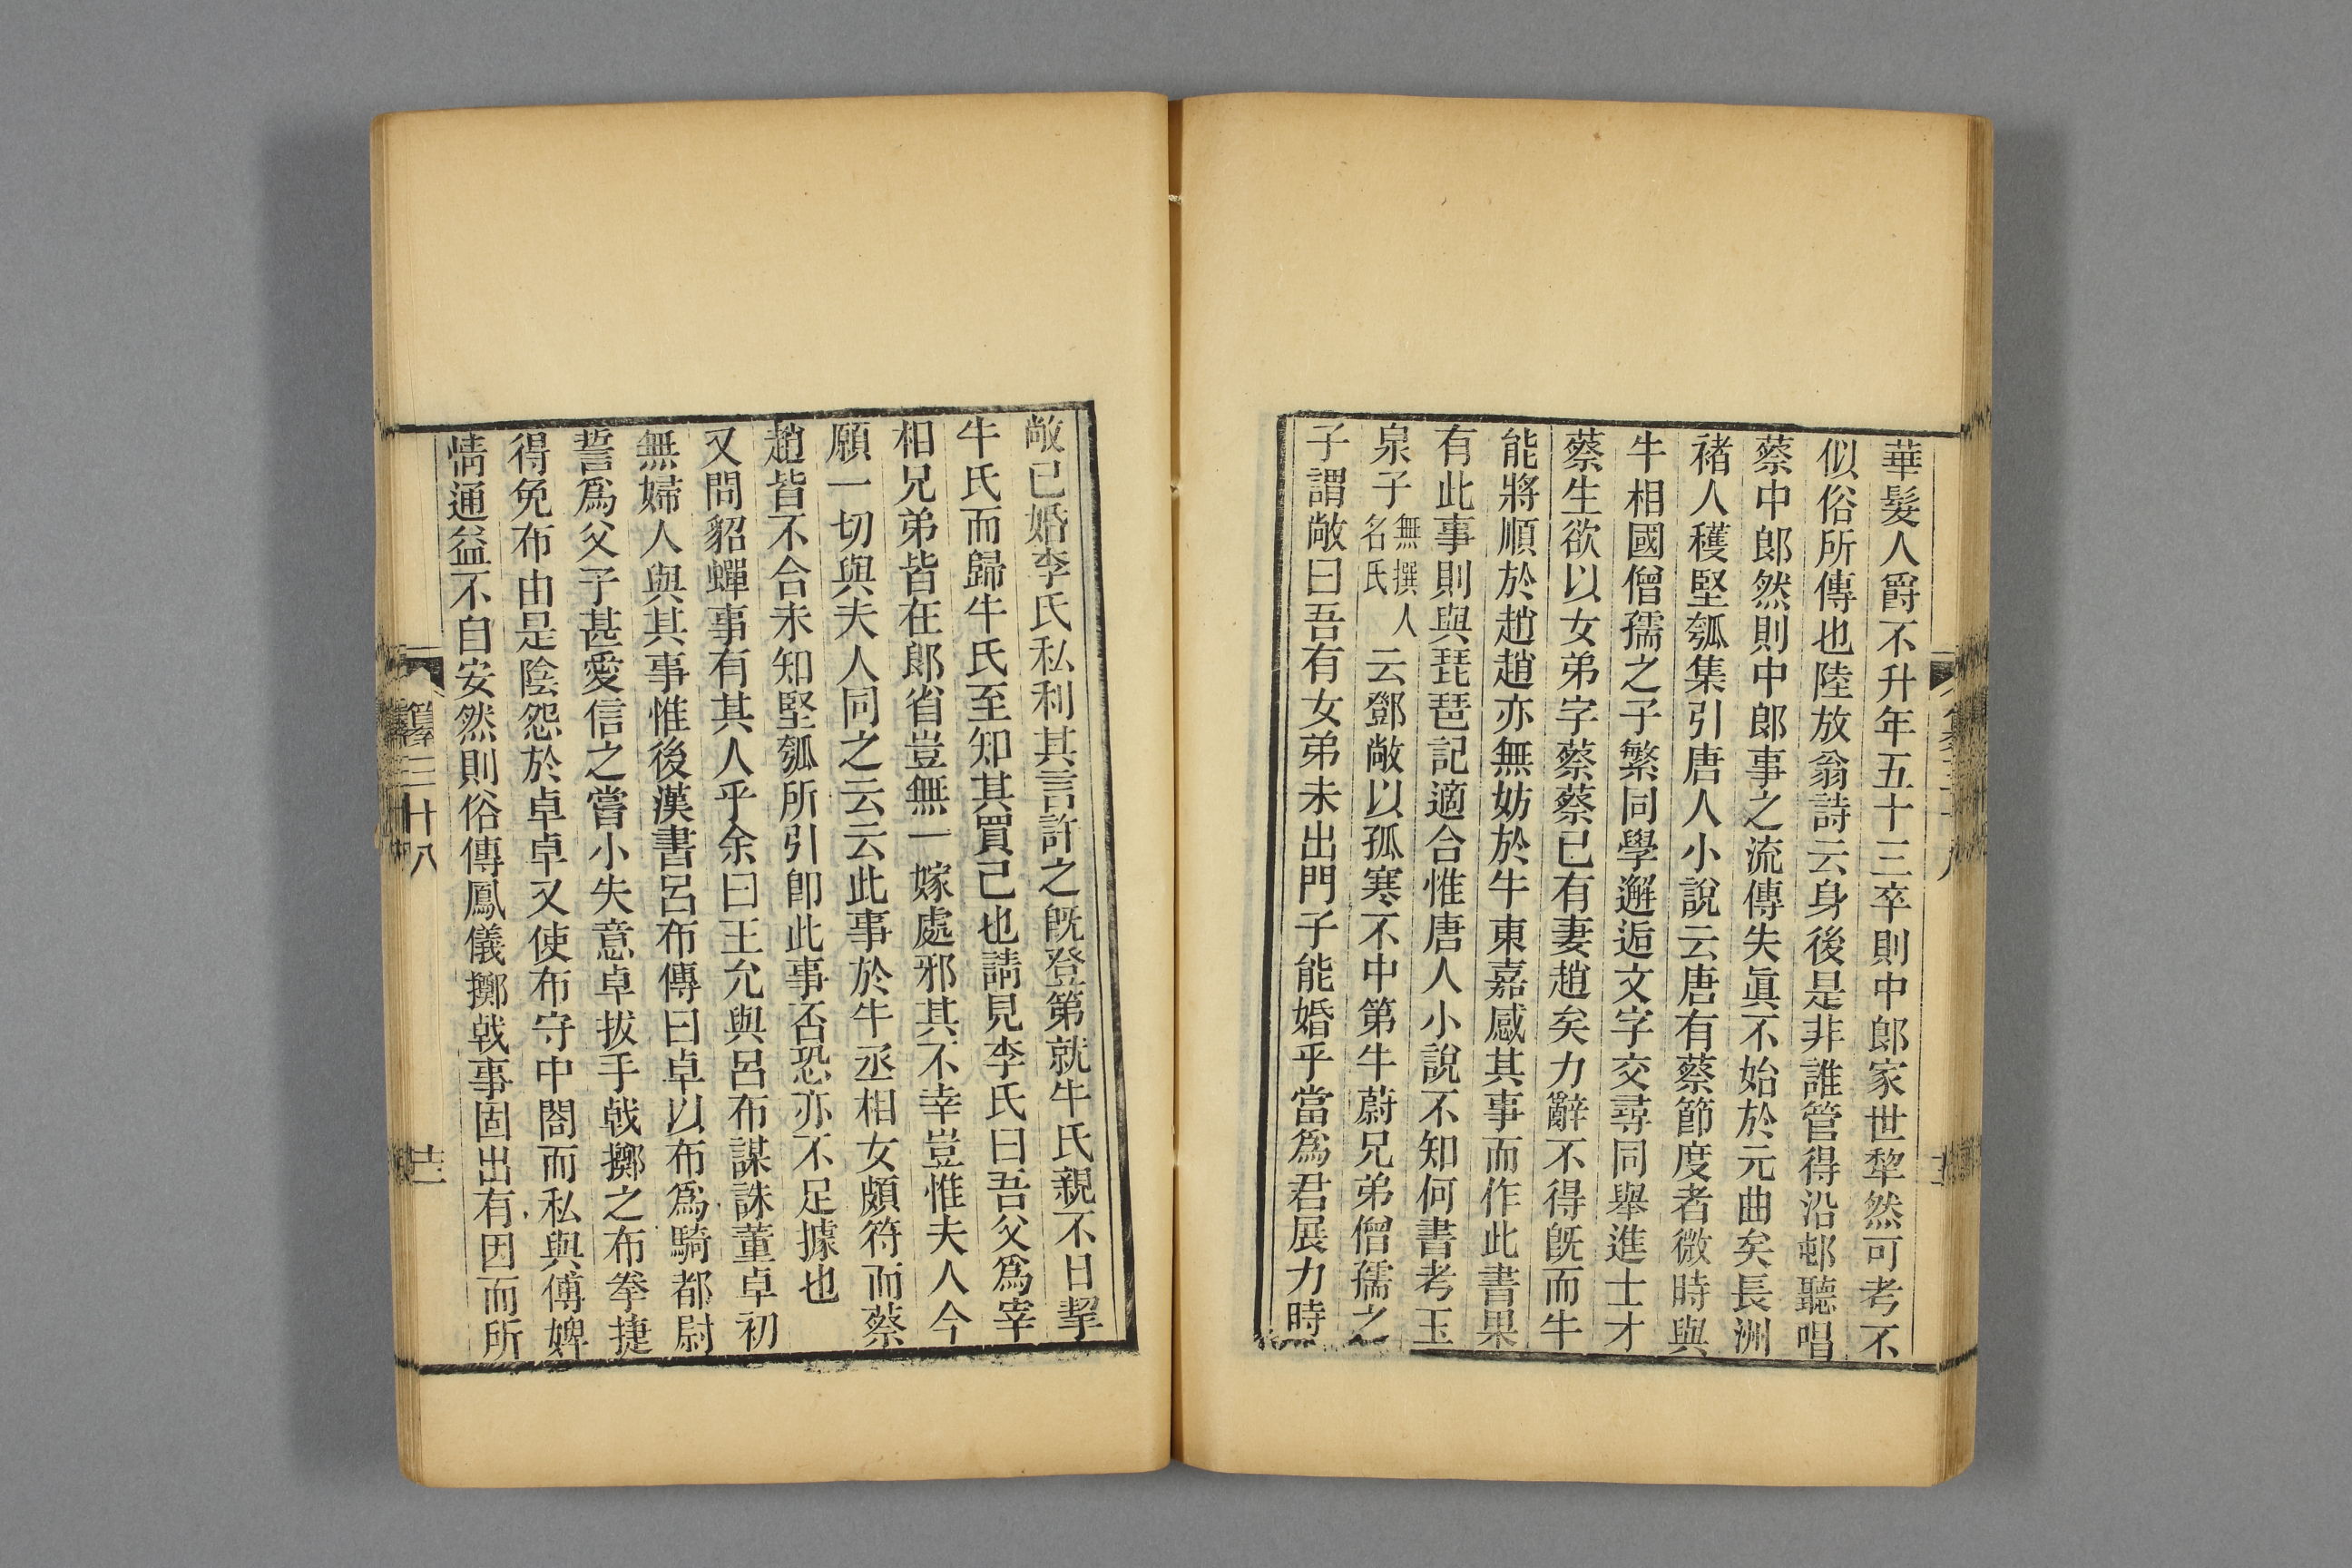 華髮人爵不升年五十三卒則中郎家世犂然可考不
似俗所傳也陸放翁詩云身後是非誰管得沿邨聽唱
蔡中郎然則中郎事之流傳失眞不始於元曲矣長洲
褚人穫堅瓠集引唐人小說云唐有蔡節度者微時與
牛相國僧孺之子繁同學邂逅文字交尋同舉進士才
蔡生欲以女弟字蔡蔡已有妻趙矣力辭不得旣而牛
能將順於趙趙亦無妨於牛東嘉感其事而作此書果
有此事則與琵琶記適合惟唐人小說不知何書考玉
泉子無撰人名氏云鄧敞以孤寒不中第牛蔚兄弟僧孺之
子謂敞曰吾有女弟未出門子能婚乎當爲君展力時
敞已婚李氏私利其言許之旣登第就牛氏親不日挈
牛氏而歸牛氏至知其買己也請見李氏曰吾父爲宰
相兄弟皆在郎省豈無一嫁處邪其不幸豈惟夫人今
願一切與夫人同之云云此事於牛丞相女頗符而蔡
趙皆不合未知堅瓠所引卽此事否恐亦不足據也
又問貂蟬事有其人乎余曰王允與呂布謀誅董卓初
無婦人與其事惟後漢書呂布傳曰卓以布爲騎都尉
誓爲父子甚愛信之嘗小失意卓拔手戟擲之布拳捷
得免布由是陰怨於卓卓又使布守中閤而私與傅婢
情通益不自安然則俗傳鳳儀擲戟事固出有因而所